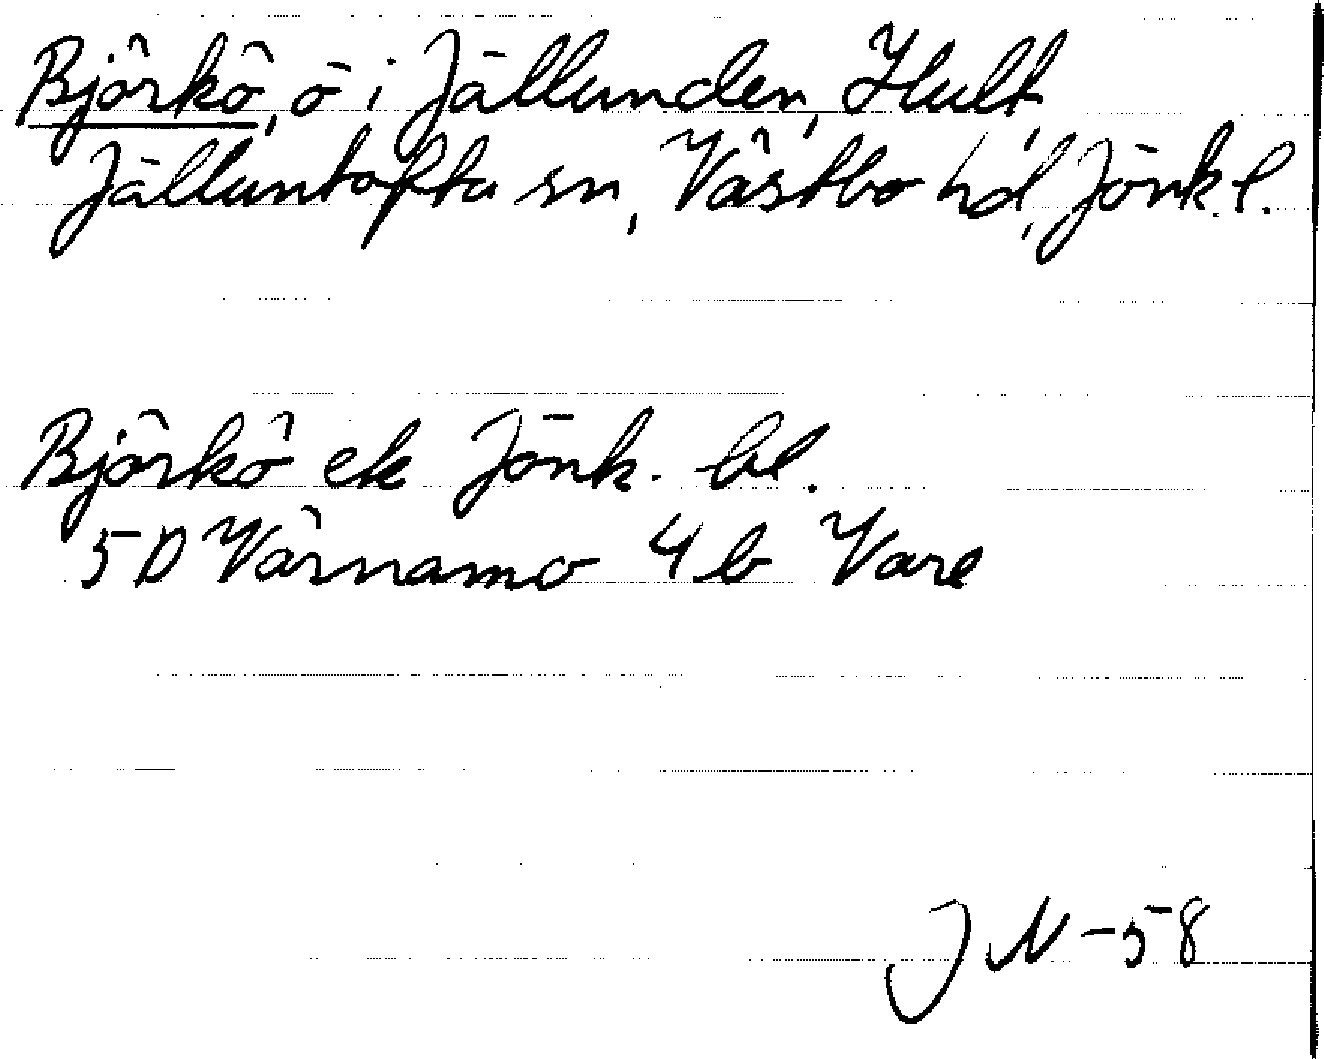 Björkö, ö i Jällunden, Hult,
Jälluntofta sn, Västbo hd, Jönk.l.
Björkö ek Jönk. bl.
5D Värnamo 4b Vare
JN-58